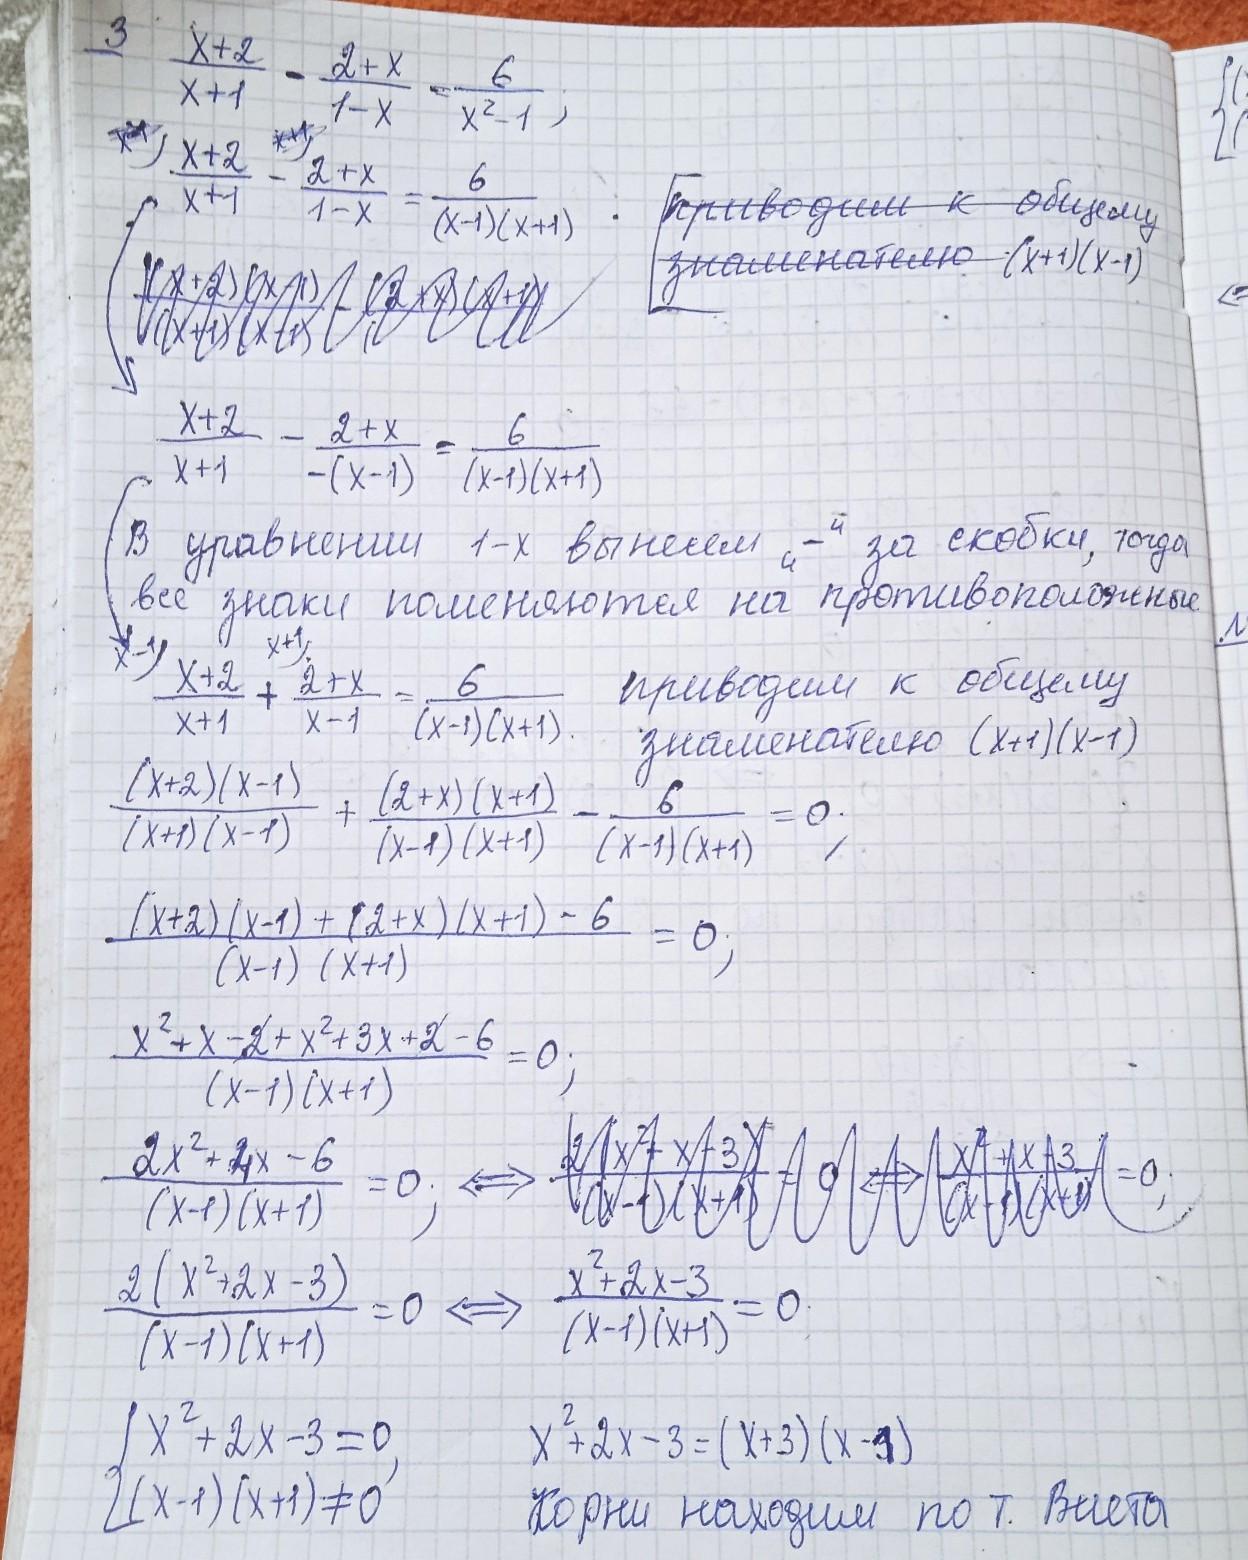 3 (x+2)/(x+1) - (2+x)/(1-x) = 6/(x²-1);
(x+2)/(x+1) - (2+x)/(1-x) = 6/((x-1)(x+1)) .
приводим к общему
знаменателю (x+1)(x-1)
(x+2)/(x+1) - (2+x)/(-(x-1)) = 6/((x-1)(x+1))
В уравнении 1-x вынесем „-“ за скобки, тогда
все знаки поменяются на противоположные
x-1) (x+2)/(x+1) + x+1) (2+x)/(x-1) = 6/((x-1)(x+1)). приводим к общему
знаменателю (x+1)(x-1)
((x+2)(x-1))/((x+1)(x-1)) + ((2+x)(x+1))/((x-1)(x+1)) - 6/((x-1)(x+1)) = 0;
((x+2)(x-1)+(2+x)(x+1)-6)/((x-1)(x+1)) = 0;
(x²+x-2+x²+3x+2-6)/((x-1)(x+1)) = 0;
(2x²+4x-6)/((x-1)(x+1)) = 0; ⟺ = 0;
2(x²+2x-3)/((x-1)(x+1)) = 0 ⟺ (x²+2x-3)/((x-1)(x+1)) = 0
{x²+2x-3=0, x²+2x-3=(x+3)(x-1)
(x-1)(x+1)≠0 Корни находим по т. Виета